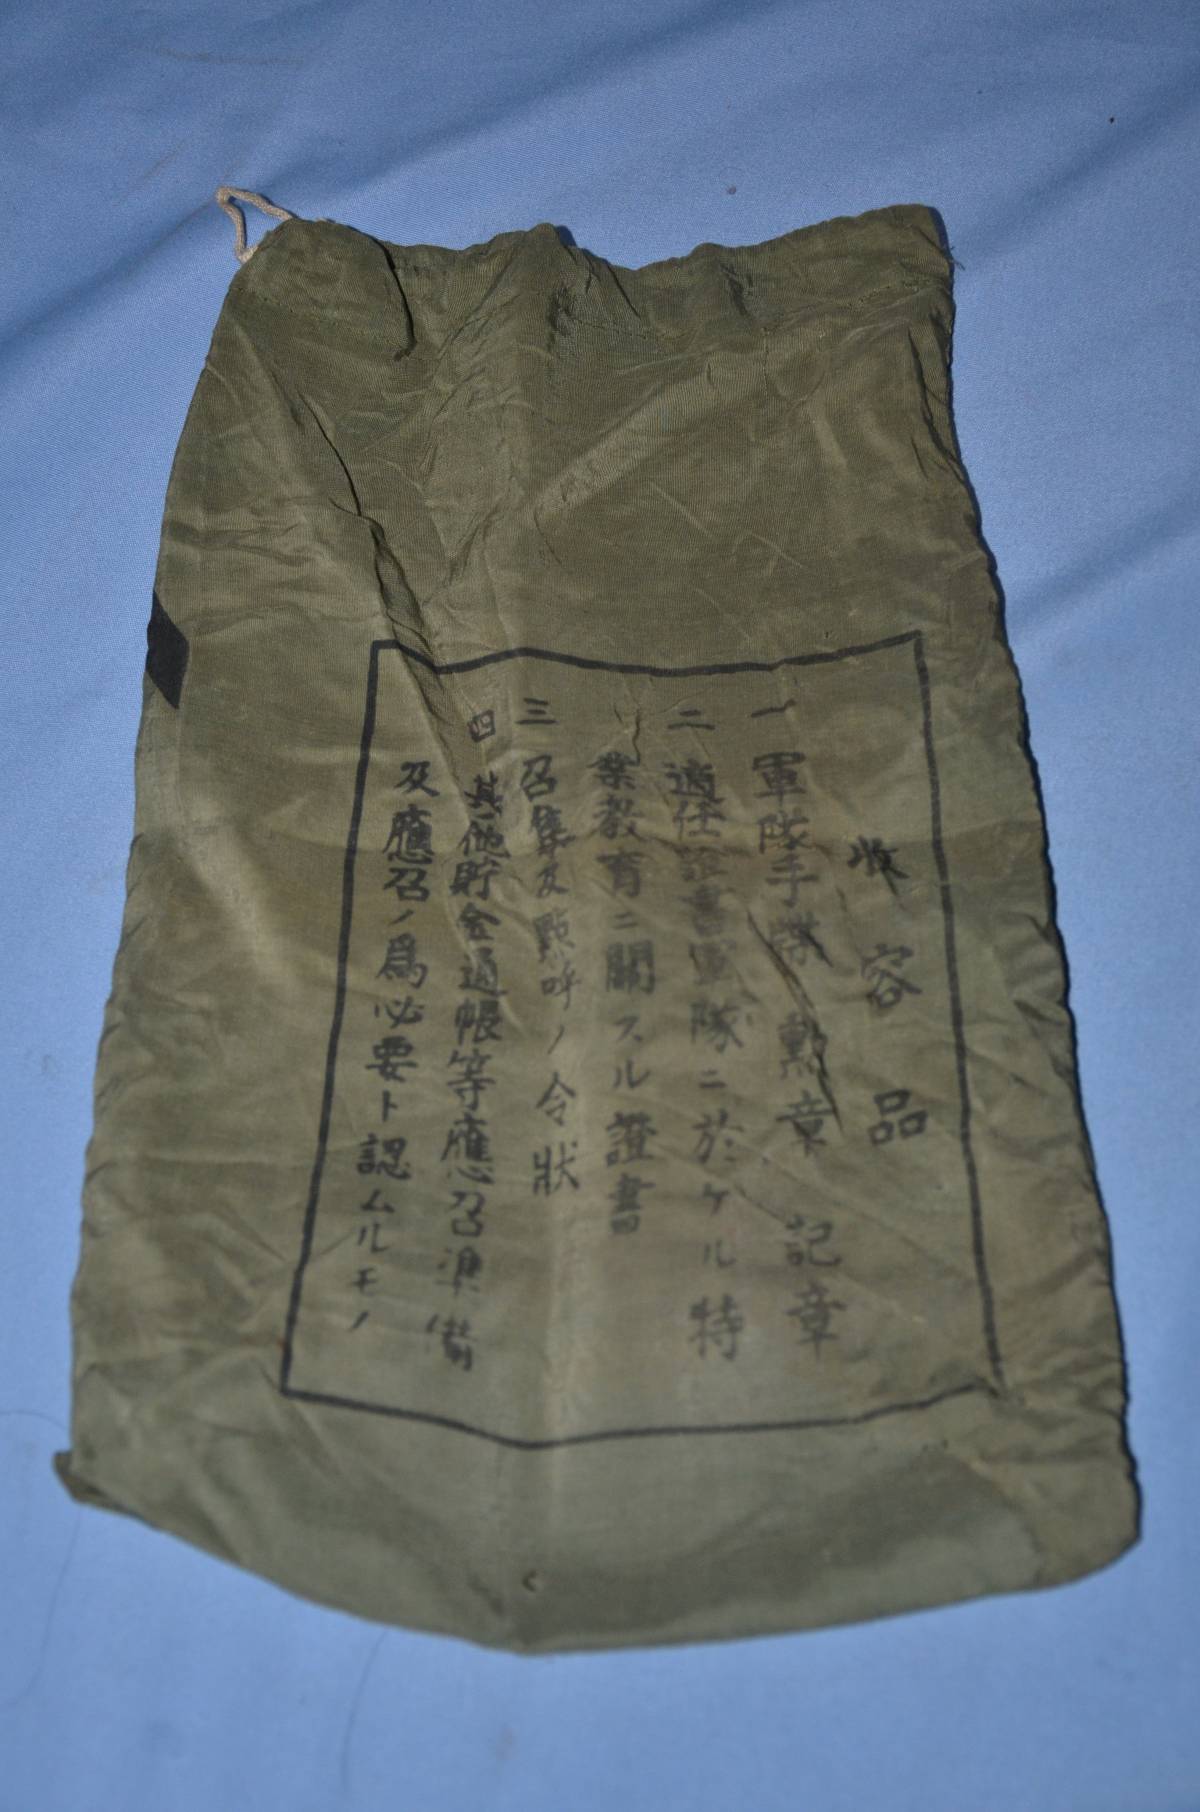 收容品
一 軍隊手牒 勲章 記章
二 適任證書軍隊ニ於ケル特
業教育ニ關スル證書
三 召集及點呼ノ令狀
四 其他貯金通帳等應召準備
及應召ノ爲必要ト認ムルモノ